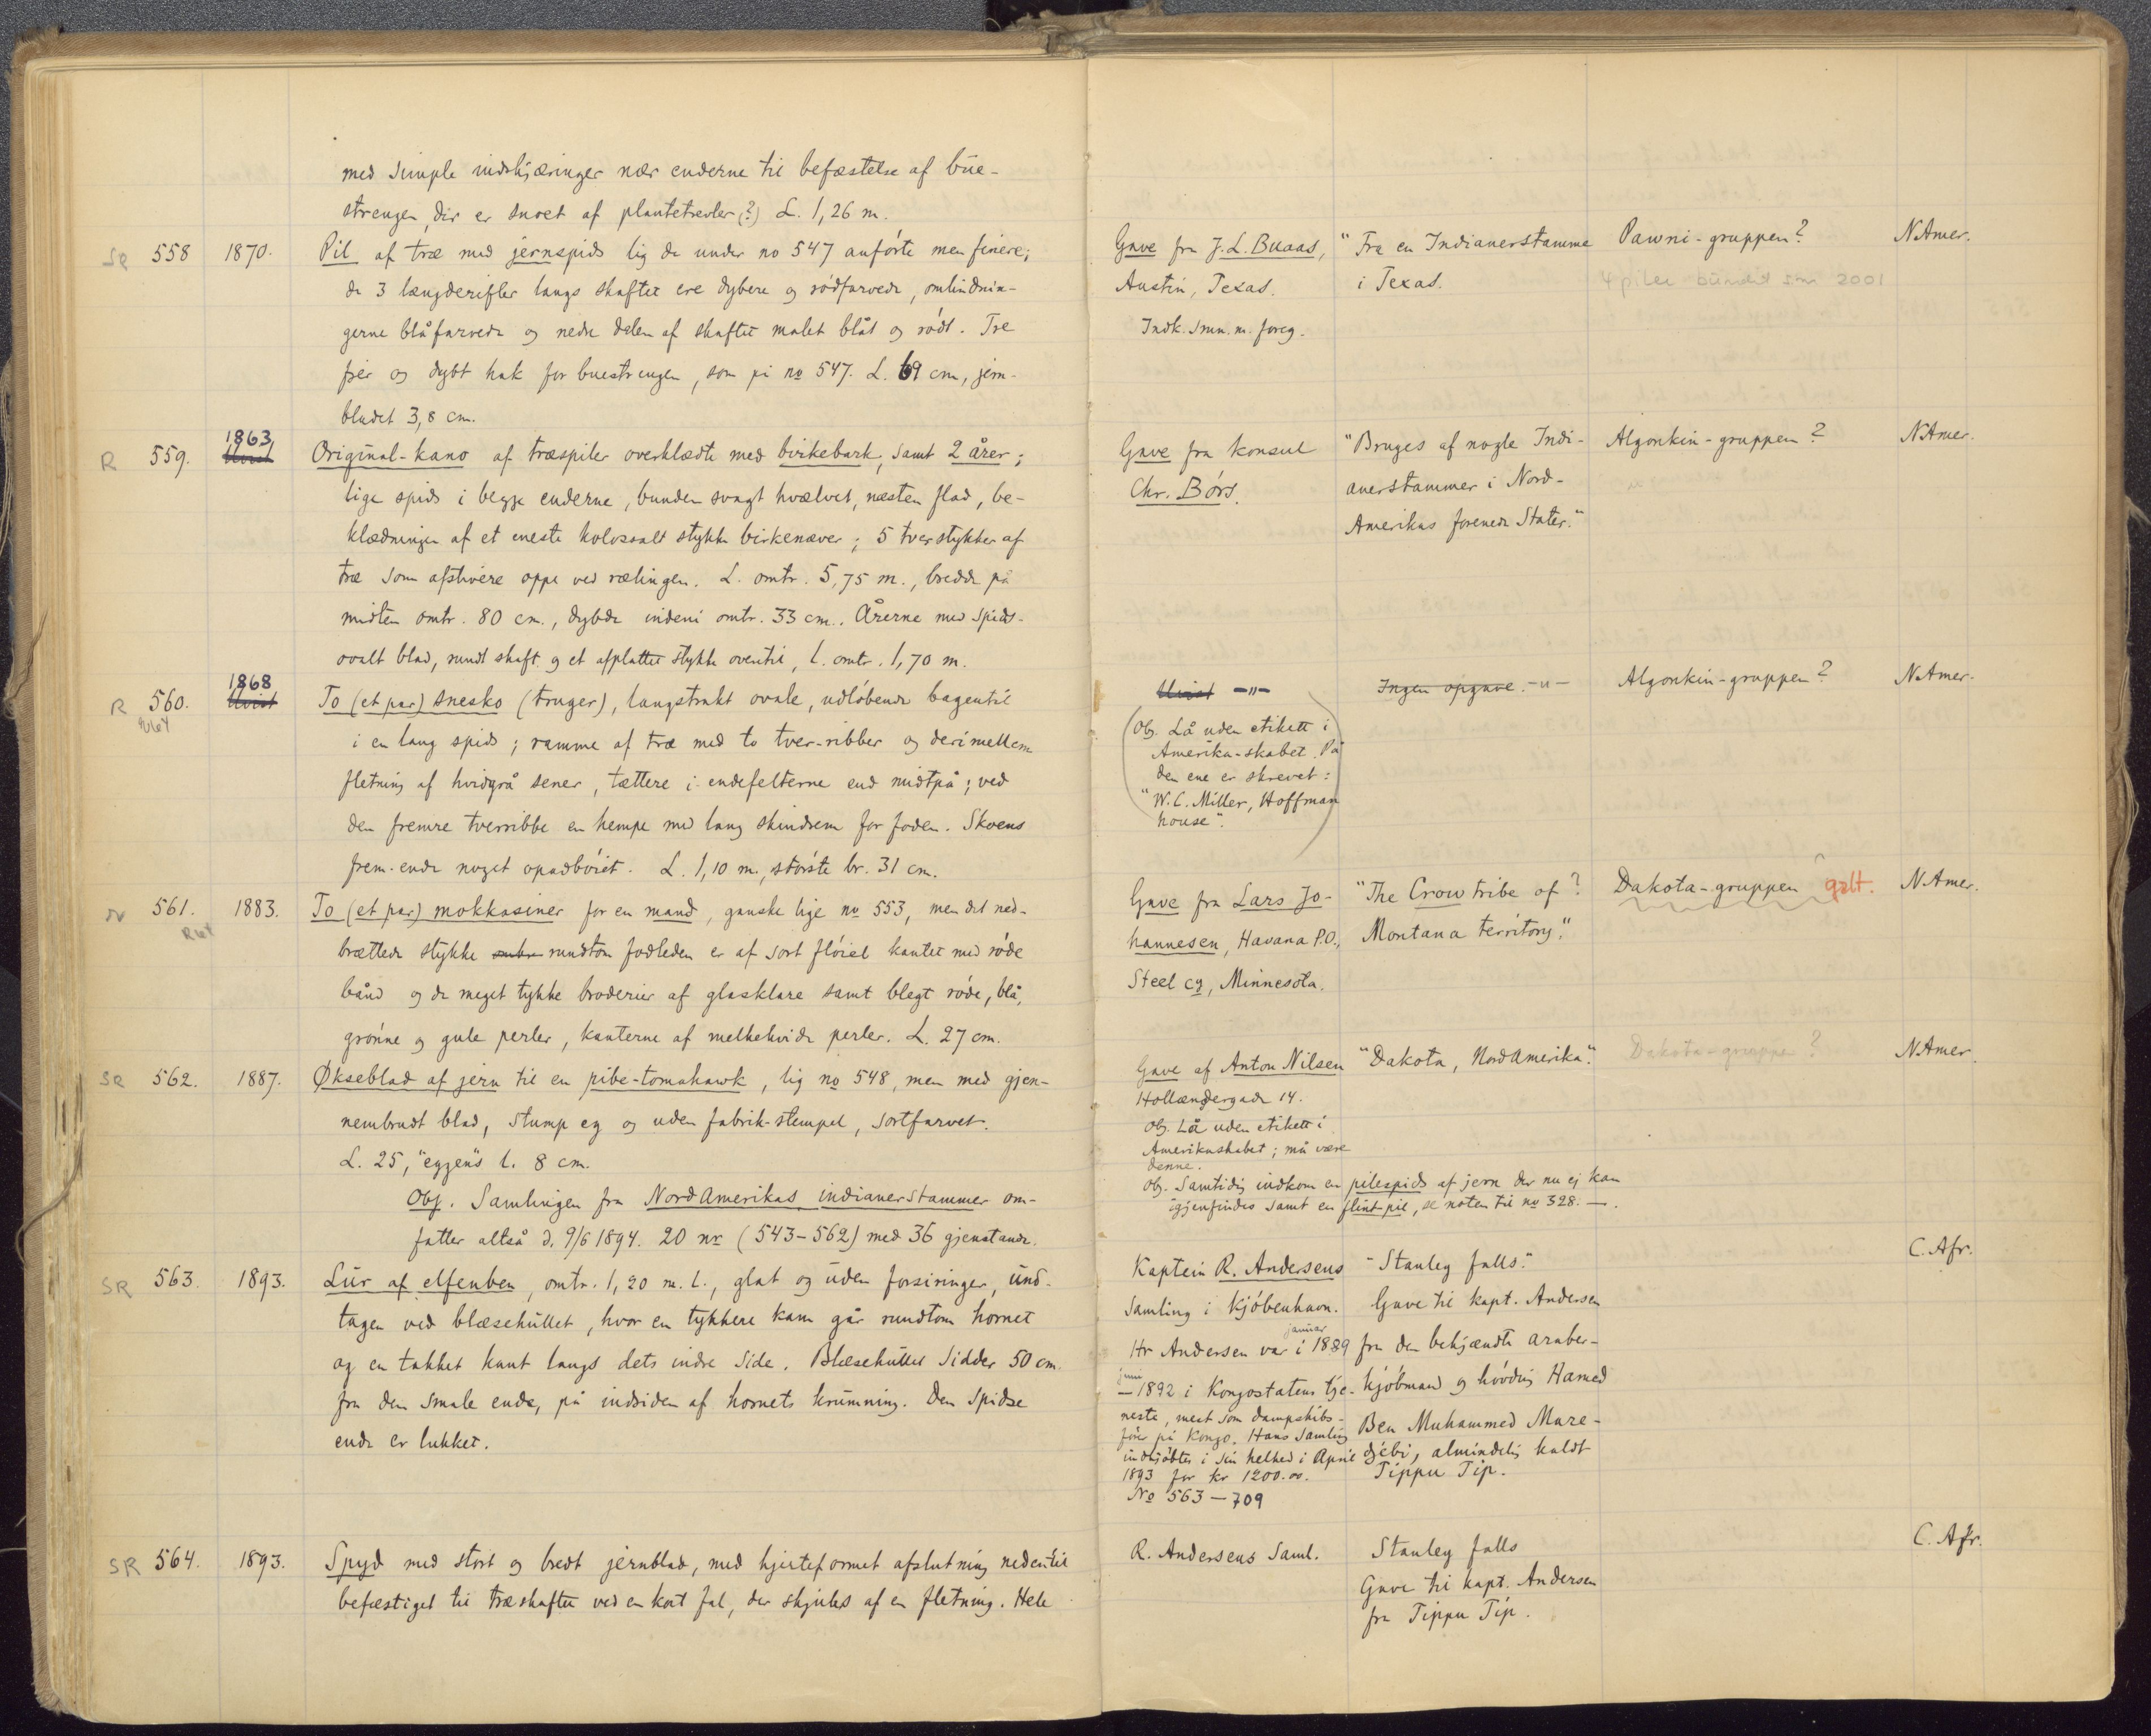 med simple indskjæringer nær enderne til befæstelse af bue-
strengen, der er snoet af plantetrevler (?) L. 1,26 m.
SR 558 1870. Pil af træ med jernspids lig de under no 547 anförte men finere;
de 3 længderifler langs skaftet ere dybere og rödfarvede, omvindnin-
gerne blåfarvede og nedre delen af skaftet malet blåt og rödt. Tre
fjer og dybt hak for buestrengen, som på no 547. L. 69 cm, jern-
bladet 3,8 cm.
Gave fra J. L. Buaas,
Austin, Texas.
Indk. smn. m. foreg.
"Fra en Indianerstamme
i Texas.
Pawni-gruppen?
4 piler bundet som 2001
N.Amer.
R 559. 1863 Uvist Original-kano af træspiler overklædte med birkebark, samt 2 årer;
lige spids i begge enderne, bunden svagt hvælvet, næsten flad, be-
klædningen af et eneste kolossalt stykke birkenæver; 5 tverstykker af
træ som afstivere oppe ved rælingen. L. omtr. 5,75 m., bredde på
midten omtr. 80 cm., dybde indeni omtr. 33 cm. Årerne med spids-
ovalt blad, rundt skaft og et afplattet stykke oventil, l. omtr. 1,70 m.
Gave fra konsul
Chr. Börs.
"Bruges af nogle Indi-
anerstammer i Nord-
Amerikas forenede Stater."
Algonkin-gruppen?
N.Amer.
R 560. 1868 Uvist To (et par) snesko (truger), langstrakt ovale, udlöbende bagentil
i en lang spids; ramme af træ med to tver-ribber og derimellem
fletning af hvidgrå sener, tættere i endefelterne end midtpå; ved
den fremre tverribbe en hempe med lang skindrem for foden. Skoens
frem-ende noget opadböiet. L. 1,10 m., störste br. 31 cm.
Uvist -"-
(Obs. Lå uden etikett i
Amerika-skabet. På
den ene er skrevet:
"W. C. Miller, Hoffman
house".)
Ingen opgave. -"-
Algonkin-gruppen?
N.Amer.
561. 1883. To (et par) mokkasiner for en mand, ganske lige no 553, men det ned-
brættede stykke rundtom fodleden er af sort flöiel kantet med röde
bånd og de meget tykke broderier af glasklare samt blegt röde, blå,
grönne og gule perler, kanterne af melkehvide perler. L. 27 cm.
Gave fra Lars Jo-
hannesen, Havana P.O.,
Steel Cy, Minnesota.
"The Crow tribe of?
Montana territory."
Dakota-gruppen galt.
N.Amer.
SR 562. 1887. Økseblad af jern til en pibe-tomahawk, lig no 548, men med gjen-
nembrudt blad, stump eg og uden fabrik-stempel, sortfarvet.
L. 25, "eggens" l. 8 cm.
Obs. Samlingen fra Nordamerikas indianerstammer om-
fatter altså d. 9/6 1894. 20 nr (543-562) med 36 gjenstande.
Gave af Anton Nilsen
Hollændergade 14.
Obs. Lå uden etikett i
Amerikaskabet; må være
denne.
Obs. Samtidig indkom en pilespids af jern der nu ej kan
igjenfindes samt en flint-pil, se noten til no 328. —.
"Dakota, Nordamerika".
Dakota-gruppen?
N.Amer.
SR 563. 1893. Lur af elfenben, omtr. 1,20 m. l., glat og uden forsiringer, und-
tagen ved blæsehullet, hvor en tykkere kam går rundtom hornet
og en takket kant langs dets indre side. Blæsehullet sidder 50 cm.
fra den smale ende, på indsiden af hornets krumning. Den spidse
ende er lukket.
Kaptein R. Andersens
samling i Kjöbenhavn.
Hr Andersen var i januar 1889
juni
— 1892 i Kongostatens tje-
neste, mest som dampskibs-
förer på Kongo. Hans samling
indkjöbtes i sin helhed i April
1893 for kr 1200.00.
No 563 — 709
"Stanley falls."
Gave til kapt. Andersen
fra den bekjendte araber-
kjöbmand og hövding Hamed
Ben Muhammed Mure-
djebi, almindelig kaldt
Tippu Tip.
C. Afr.
SR 564. 1893. Spyd med stort og bredt jernblad, med hjerteformet afslutning nedentil
befæstiget til træskaftet ved en kort fal, der skjules af en fletning. Hele
R. Andersens Saml.
Stanley falls
Gave til kapt. Andersen
fra Tippu Tip.
C. Afr.